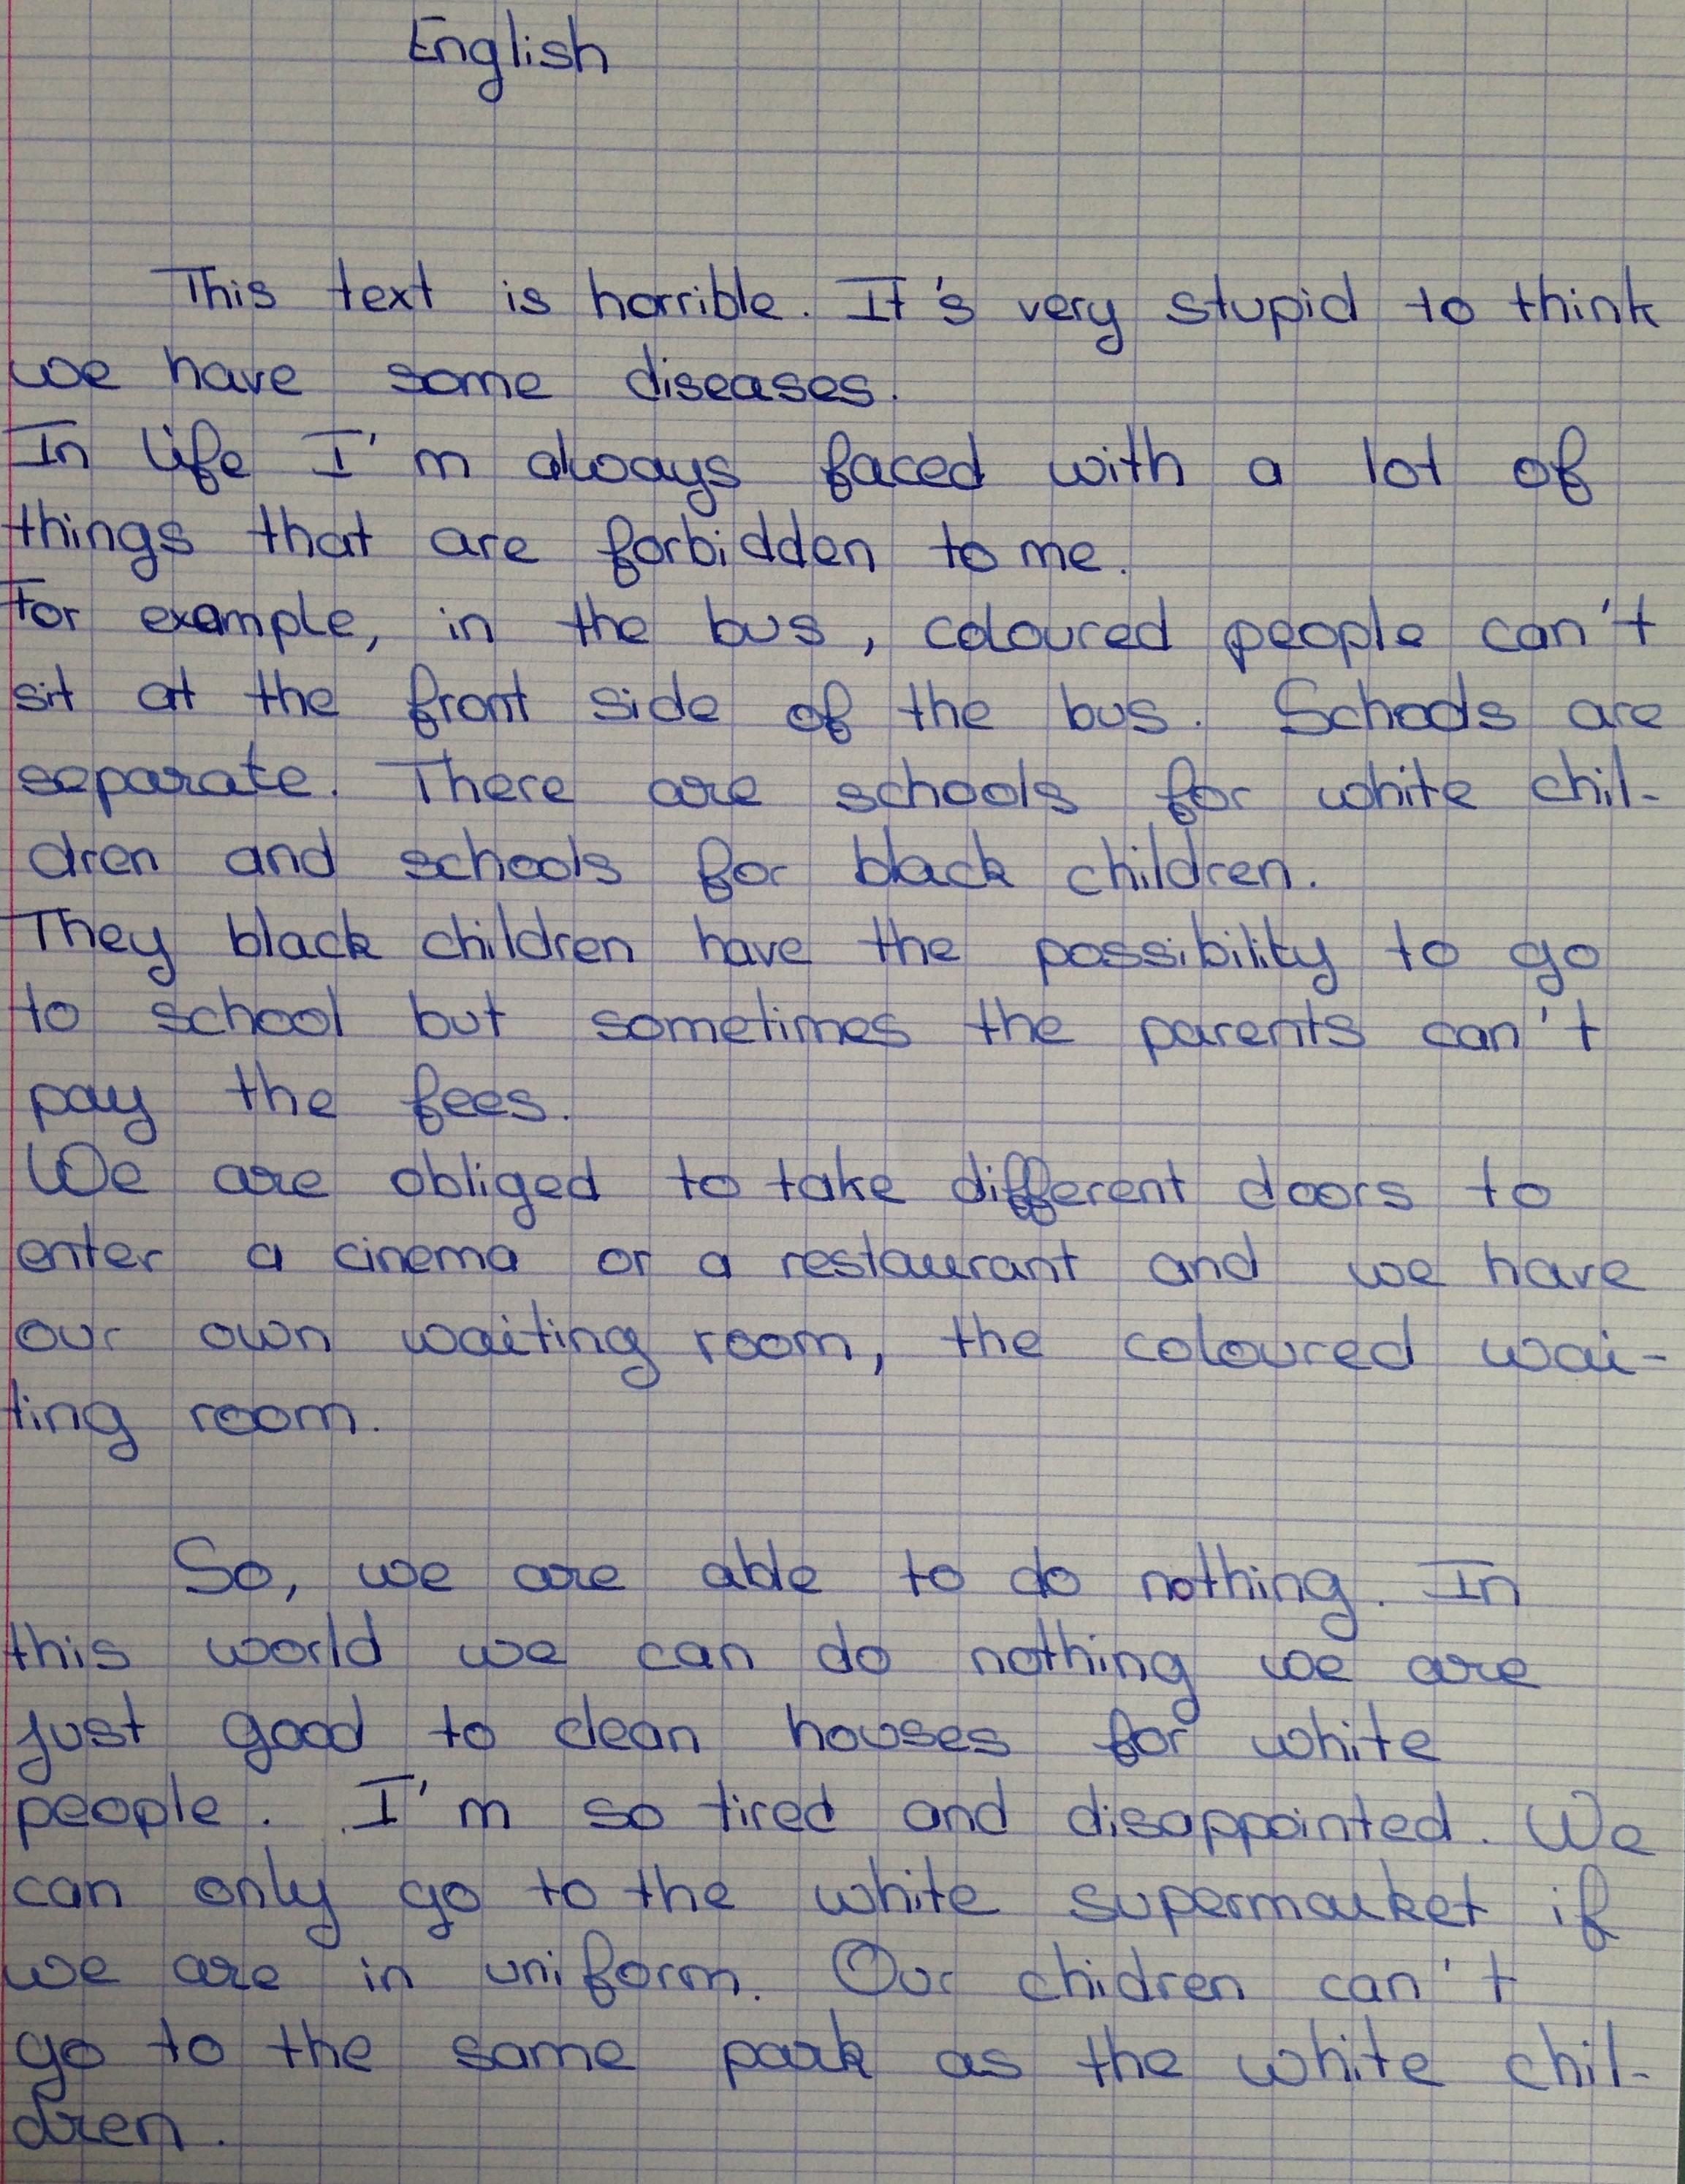 English
This text is horrible. It's very stupid to think
we have some diseases.
In life I'm always faced with a lot of
things that are forbidden to me.
For example, in the bus, coloured people can't
sit at the front side of the bus. Schools are
separate. There are schools for white chil-
dren and schools for black children.
They black children have the possibility to go
to school but sometimes the parents can't
pay the fees.
We are obliged to take different doors to
enter a cinema or a restaurant and we have
our own waiting room, the coloured wai-
ting room.
So, we are able to do nothing. In
this world we can do nothing we are
just good to clean houses for white
people. I'm so tired and disappointed. We
can only go to the white supermarket if
we are in uniform. Our chidren can't
go to the same park as the white chil-
dren.